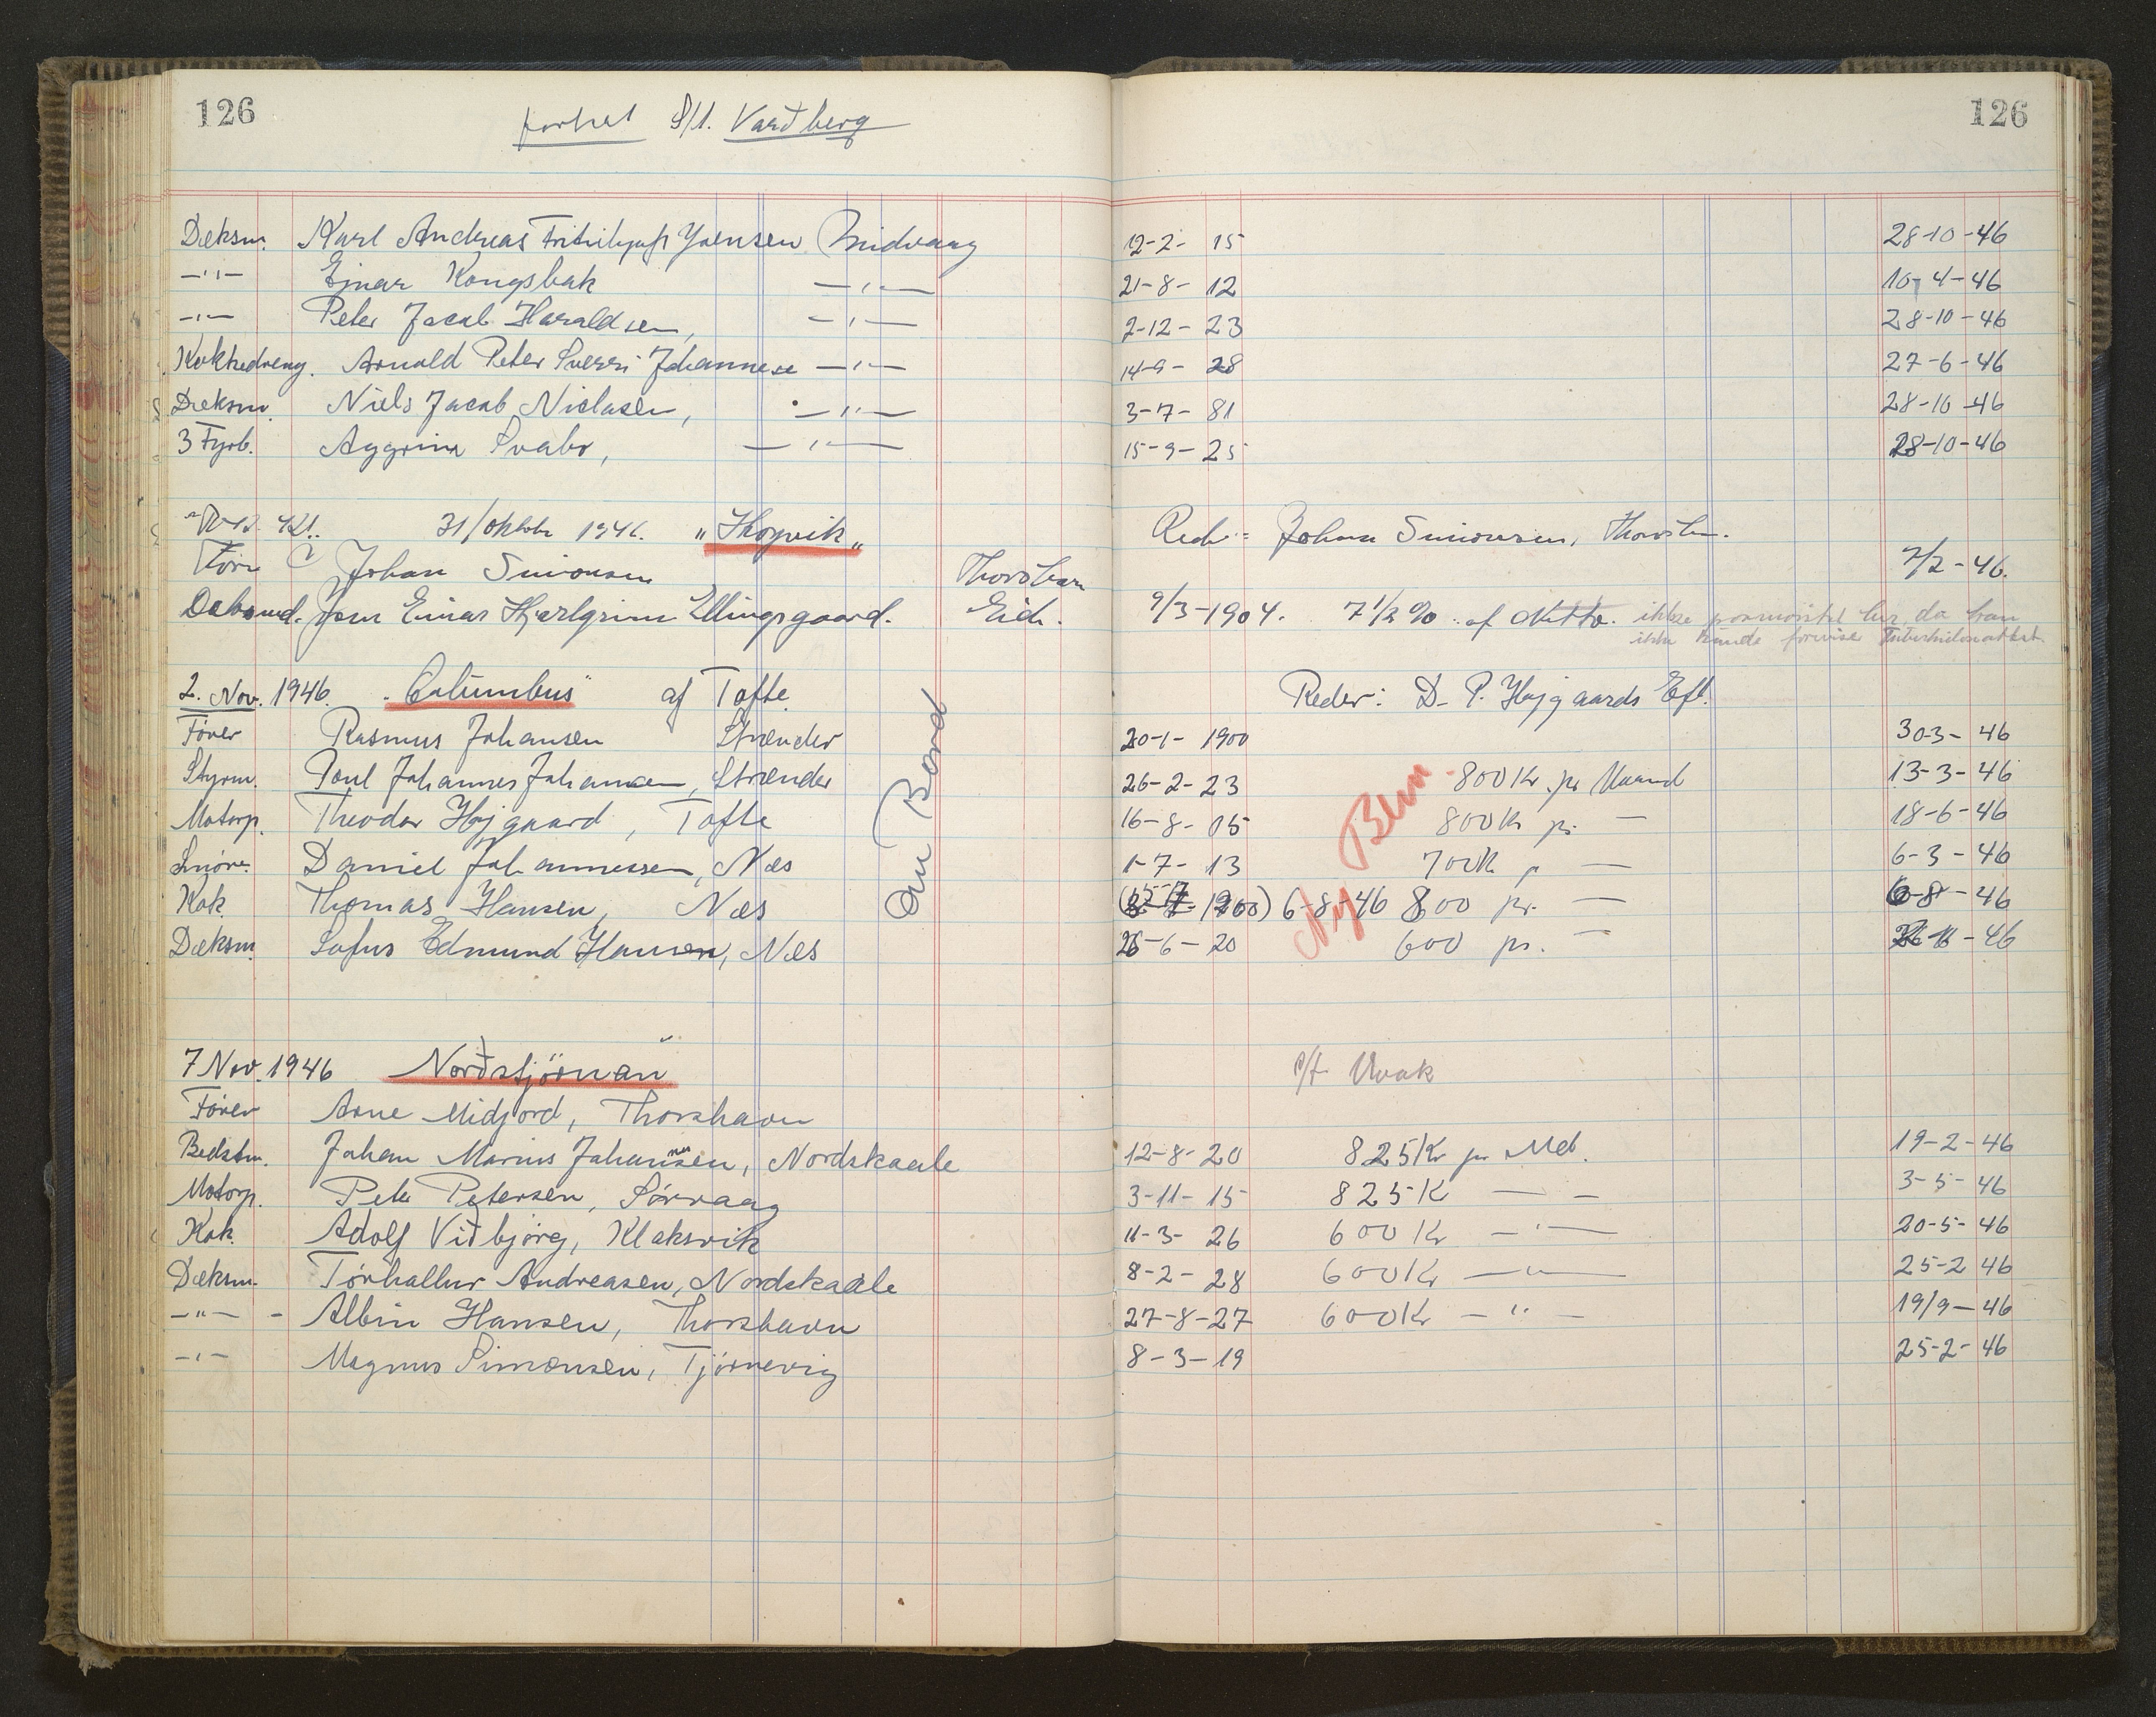 126
fortsat S/l. Varðberg
126
Dæksm. Karl Andreas Frithhjof Joensen Midvaag 12-2-15 28-10-46
-"- Ejnar Kongsbak -"- 21-8-12 10-4-46
-"- Peter Jacob Haraldsen, -"- 2-12-23 28-10-46
Kokkedreng. Arnold Peter Sverri Johannese -"- 14-9-28 27-6-46
Dæksm. Niels Jacob Niclasen, -"- 3-7-81 28-10-46
3 Fyrb. Aggrim Svabo, -"- 15-9-25 28-10-46
31/Oktobr 1946. "Skogvik" Red.: Johan Simonsen, Thorshn.
Förer Johan Simonsen Thorshavn 7/2-46.
Jens Einar Hjørlgrim Ellingsgaard. Eid. 9/3-1904. 7 1/2 % af Netto. ikke paamönstret her da han
ikke kunde forevise
2. Nov. 1946. "Columbus" af Tofte. Reder: D. P. Højgaards Eft.
Förer Rasmus Johansen Strænder 20-1-1900 30-3-46
Styrm. Poul Johannes Johansen, Strænder 26-2-23 800 Kr. pr Maaned 13-3-46
Motorp. Theodor Højgaard, Tofte 16-8-05 800 Kr pr. — 18-6-46
Daniel Johannessen, Næs 1-7-13 700 Kr p — 6-3-46
Kok Thomas Hansen, Næs 1900) 6-8-46 800 pr. — 6-8-46
Dæksm. Sofus Edmund Hansen, Næs 26-6-20 600 pr. — 46
Om Bord
Ny
7 Nov. 1946 "Norðstjörnan"
Förer Arne Midjord, Thorshavn
Bedstm. Johan Marius Johannsen, Nordskaale 12-8-20 825 Kr pr Md. 19-2-46
Motorp. Peter Petersen, Sörvaag 3-11-15 825 K — — 3-5-46
Kok. Adolf Viðbjörg, Klaksvik 11-3-26 600 Kr -"- 20-5-46
Dæksm. Tórhallur Andreasen, Nordskaale 8-2-28 600 Kr -"- 25-2 46
-"- - Albin Hansen, Thorshavn 27-8-27 600 Kr -"- 19/9-46
-"- Magnus Simonsen, Tjörnevig 8-3-19 25-2-46